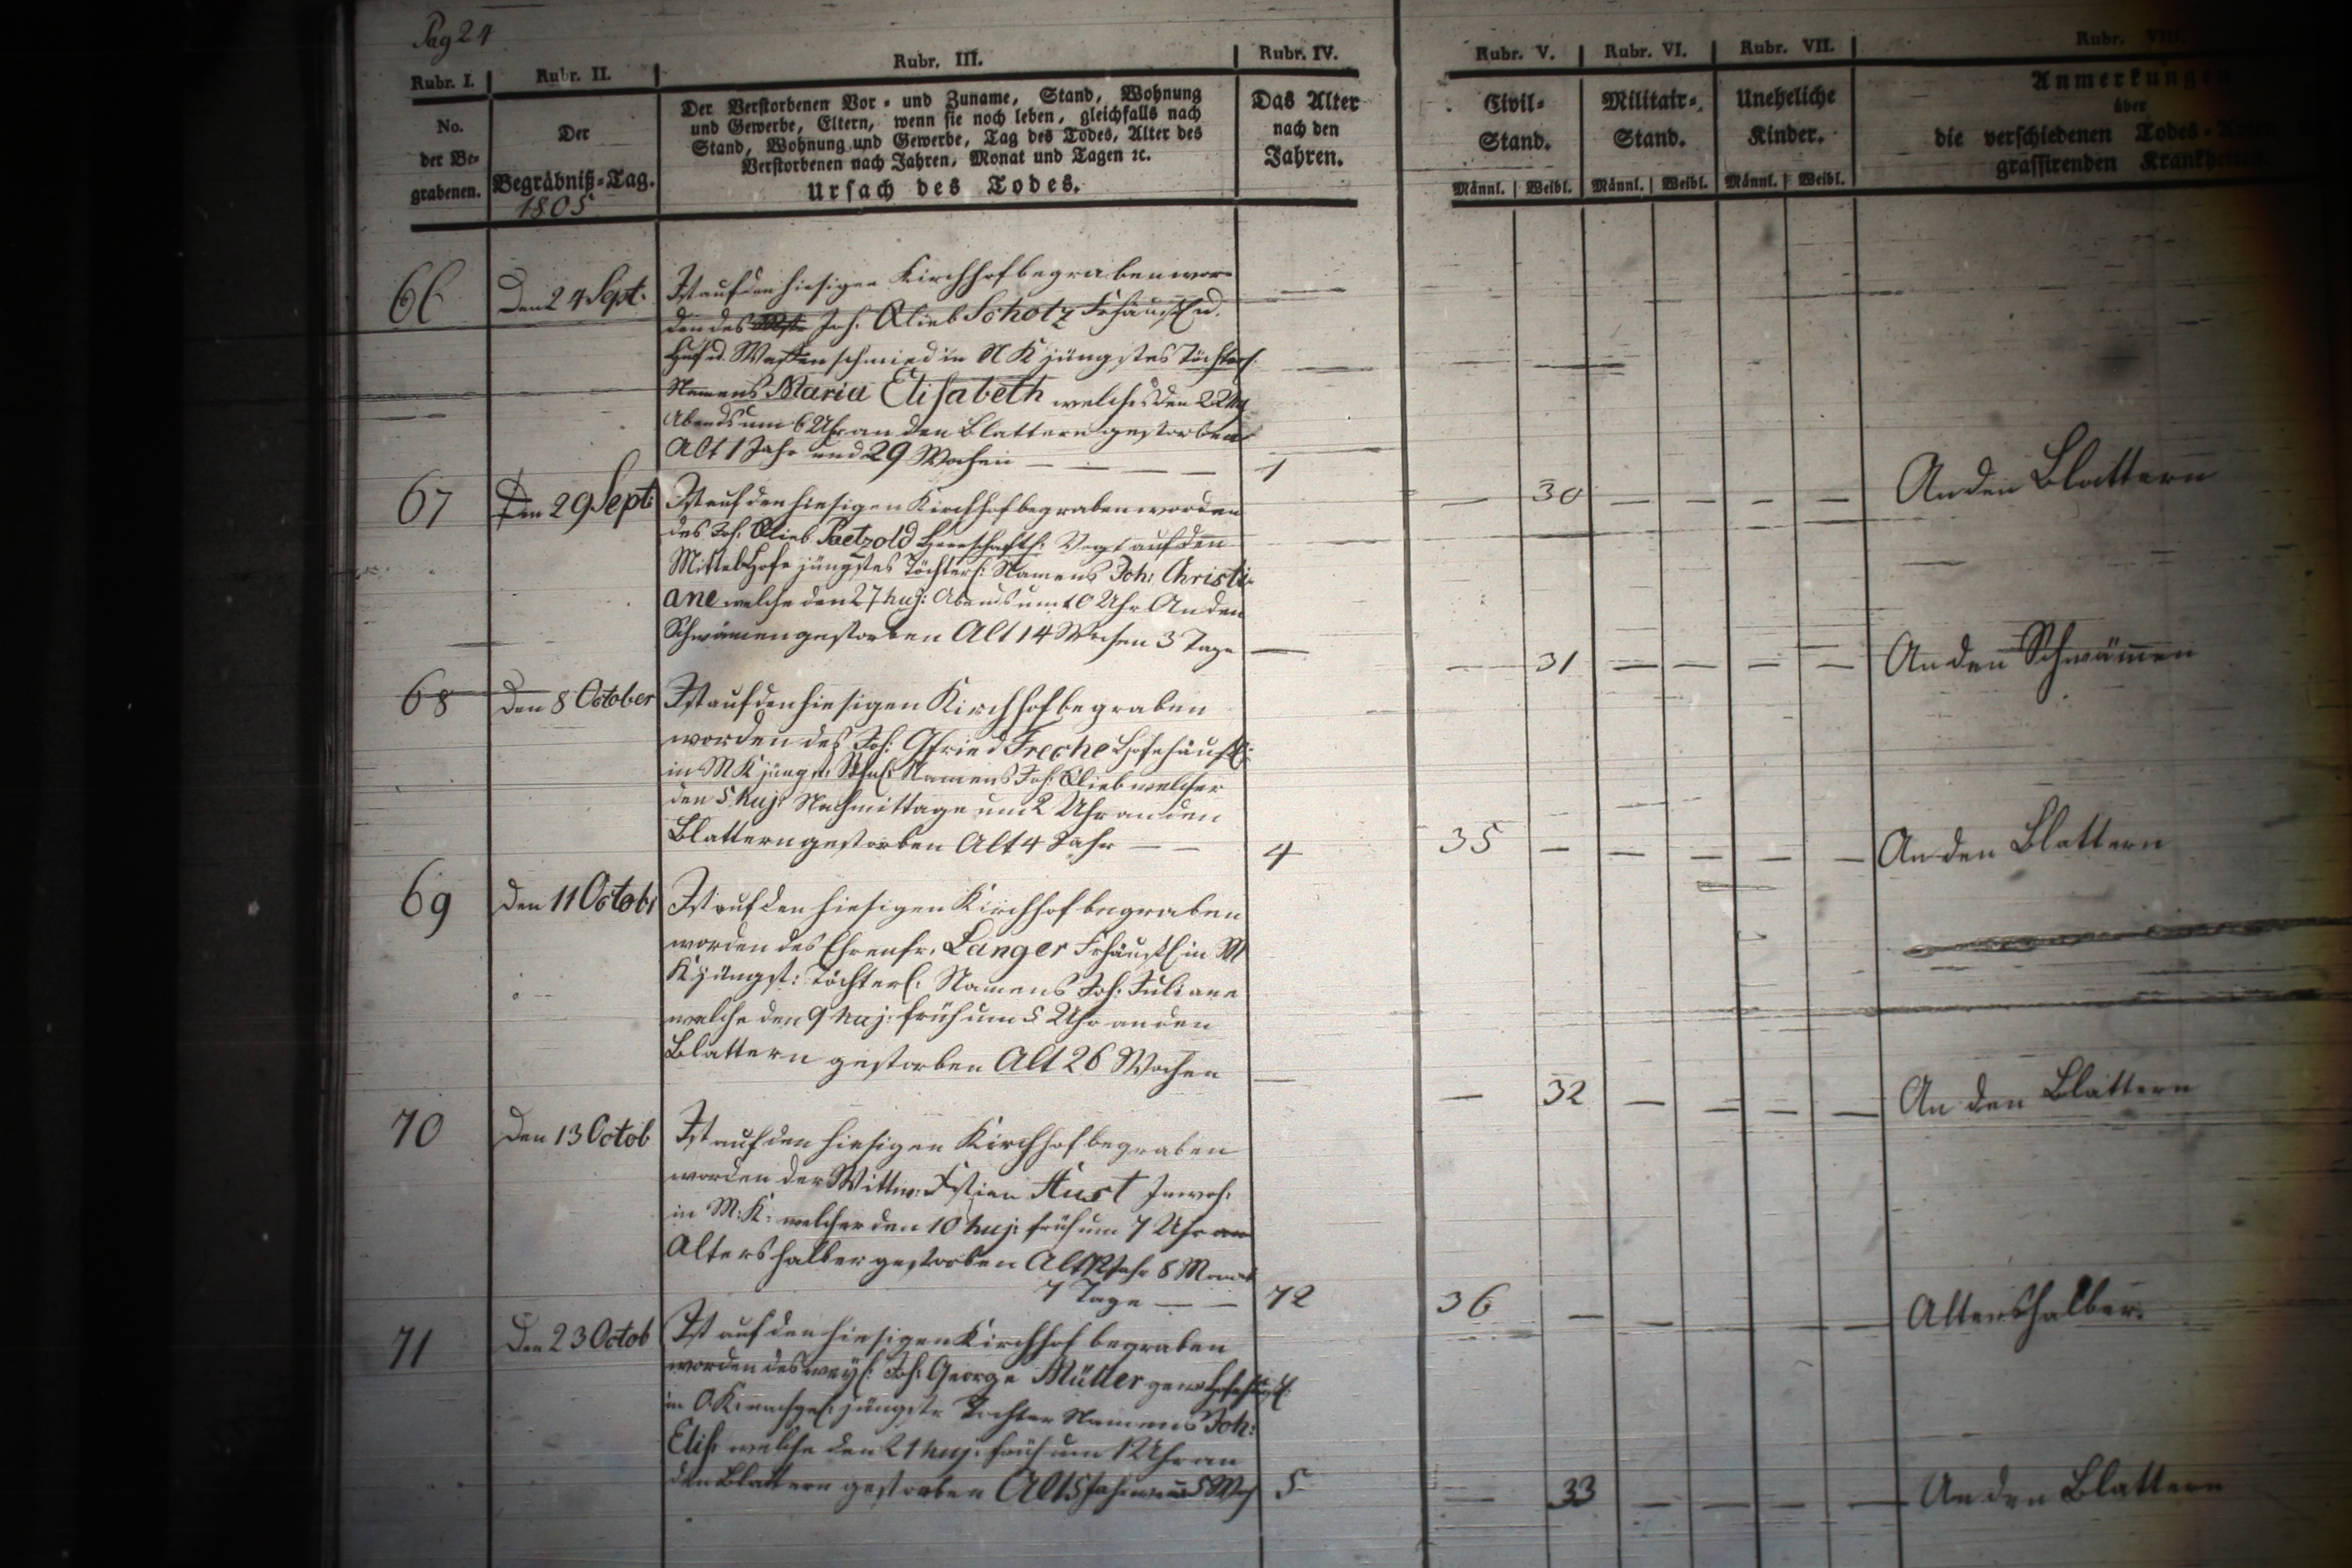 Pag 24
Rubr. I. Rubr. II. Rubr. III. Rubr. IV. Rubr. V. Rubr. VI. Rubr. VII. Rubr. VIII.
No.
der Be-
grabenen.
Der
Begräbniß-Tag.
1805
Der Verstorbenen Vor- und Zuname, Stand, Wohnung
und Gewerbe, Eltern, wenn sie noch leben, gleichfalls nach
Stand, Wohnung und Gewerbe, Tag des Todes, Alter des
Verstorbenen nach Jahren, Monat und Tagen ꝛc.
Ursach des Todes.
Das Alter
nach den
Jahren.
Civil-
Stand.
Männl. Weibl.
Militair-
Stand.
Männl. Weibl.
Uneheliche
Kinder.
Männl. Weibl.
Anmerkungen
über
die verschiedenen Todes-
grassirenden Krankheiten.
66 Den 24 Sept.
Ist auf den hiesigen Kirchhof begraben wor-
den des Joh. Glieb Scholz Frhäusl. u.
Huf u. Waffenschmied in N K jüngstes Töchterl.
Namens Maria Elisabeth welches den 22
Abends um 6 Uhr an den Blattern gestorben
Alt 1 Jahr und 29 Wochen — — — — 1
— 30 — — — — An den Blattern
67 Den 29 Sept:
Ist auf den hiesigen Kirchhof begraben worden
des Joh. Glieb Paetzold Herrschaftl. Vogt auf den
Mittel Hofe jüngstes Töchterl: Namens Joh: Christi-
ane welche den 27 huj: Abends um 10 Uhr An den
Schwämen gestorben Alt 14 Wochen 3 Tage —
— 31 — — — — An den Schwämen
68 Den 8 October
Ist auf den hiesigen Kirchhof begraben
worden des Joh: Gfried Freche Hofehäusl:
in M K jüngst: Söhnl: Namens Joh: Glieb welcher
den 5 huj: Nachmittage um 2 Uhr an den
Blattern gestorben Alt 4 Jahr — — 4
35 — — — — — An den Blattern
69 Den 11 Octobr
Ist auf den hiesigen Kirchhof begraben
worden des Ehrenfr. Langer Frhäusl in M
K jüngst: Töchterl: Namens Joh: Juliane
welche den 9 huj: früh um 5 Uhr an den
Blattern gestorben Alt 26 Wochen —
— 32 — — — — An den Blattern
70 Den 13 Octob
Ist auf den hiesigen Kirchhof begraben
worden der Wittw: Xstian Aust Inwoh:
in M: K: welcher den 10 huj: früh um 7 Uhr
Altershalber gestorben Alt 72 Jahr 8 Monat
7 Tage — — 72
36 — — — — — Altershalber.
71 Den 23 Octob
Ist auf den hiesigen Kirchhof begraben
worden des weyl: Joh: George Müller gew: Hofehäusl:
in O K: nachgel: jüngste Tochter Namens Joh:
Elis: welche den 21 huj: früh um 1 Uhr an
den Blattern gestorben Alt 5 Jahr 5 Woch 5
— 33 — — — — An den Blattern